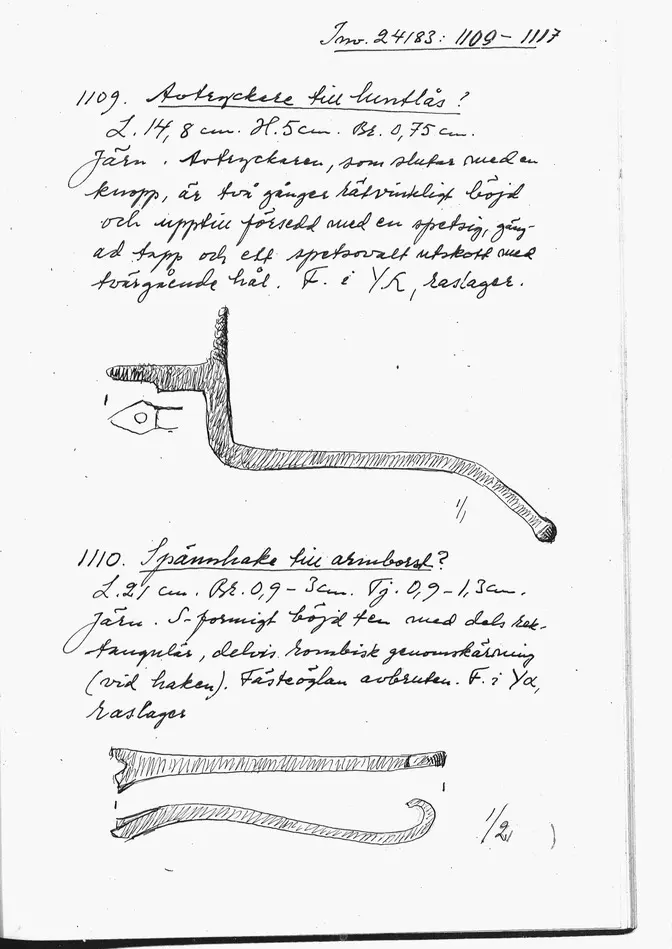 Inv. 24183: 1109 – 1117
1109. Avtryckare till luntlås?
L. 14,8 cm. H. 5 cm. Br. 0,75 cm.
Järn. Avtryckaren, som slutar med en
knopp, är två gånger rätvinkligt böjd
och upptill försedd med en spetsig, gäng-
ad tapp och ett spetsovalt utskott med
tvärgående hål. F. i Yα, raslager.
1/1
1110. Spännhake till armborst?
L. 21 cm. Br. 0,9 – 3 cm. Tj. 0,9 – 1,3 cm.
Järn. S-formigt böjd ten med dels rek-
tangulär, delvis rombisk genomskärning
(vid haken). Fästeöglan avbruten. F. i Yα,
raslager
1/2